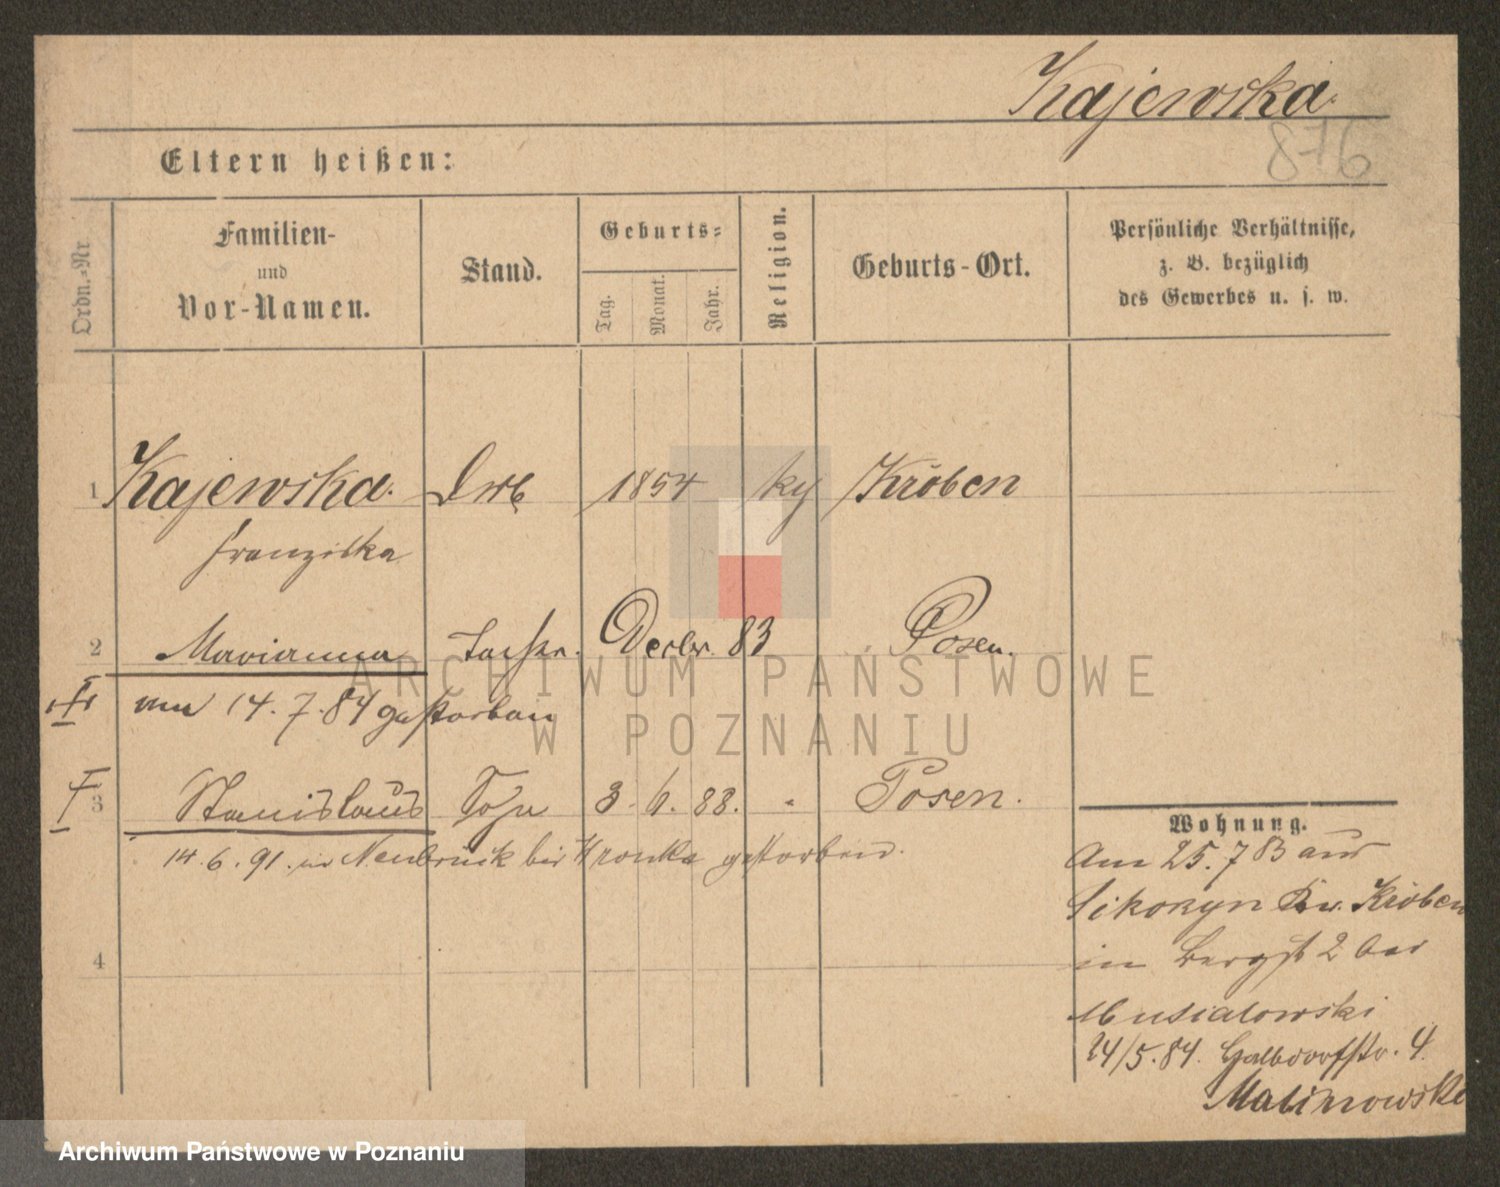 Kajewska.
876
Eltern heißen:
Ordn.-Nr.
Familien-
und
Vor-Namen.
Stand.
Geburts-
Tag.
Monat.
Jahr.
Religion.
Geburts-Ort.
Persönliche Verhältnisse,
z. B. bezüglich
des Gewerbes u. s. w.
1 Kajewska. 1854 Kröben
Franziska
2 Marianna Tochter. Decbr. 83 Posen.
am 14.7.84 gestorben
3 Stanislaus Sohn 3. 6. 88. " Posen.
14.6.91. in Neubrück bei Wronke gestorben.
4
Wohnung.
Am 25.7 83 aus
Sikorzyn Kr. Kröben
in Bergst 2 bei
Musialowski
24/5.84. Halbdorfstr. 4.
Malinowski
ARCHIWUM PAŃSTWOWE
W POZNANIU
Archiwum Państwowe w Poznaniu